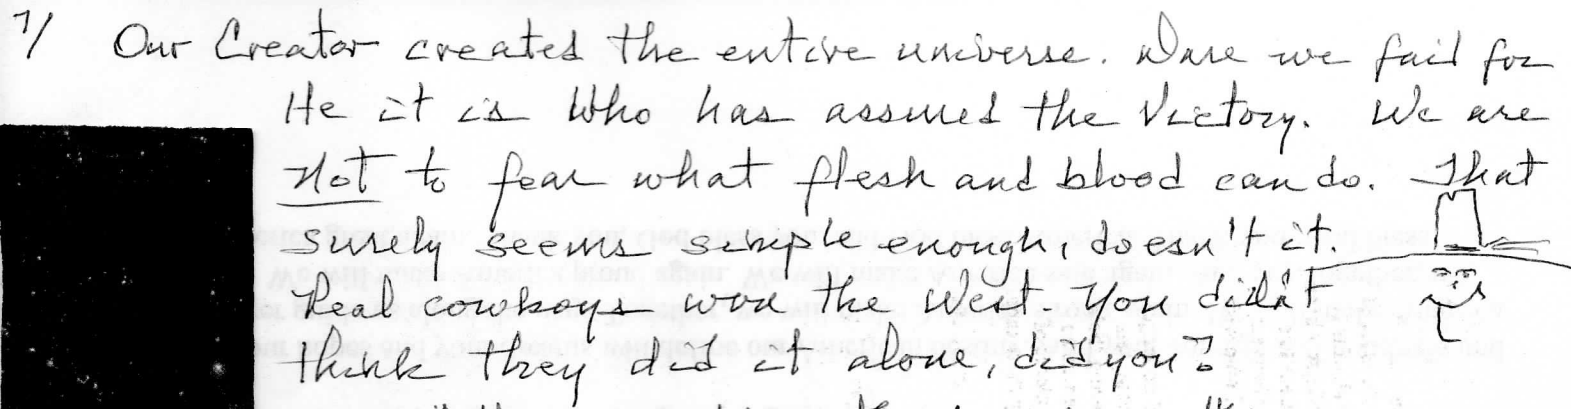 7/ Our Creator created the entire universe. Dare we fail for
He it is Who has assured the Victory. We are
Not to fear what flesh and blood can do. That
surely seems simple enough, doesn't it.
Real cowboys won the West. You didn't
think they did it alone, did you?